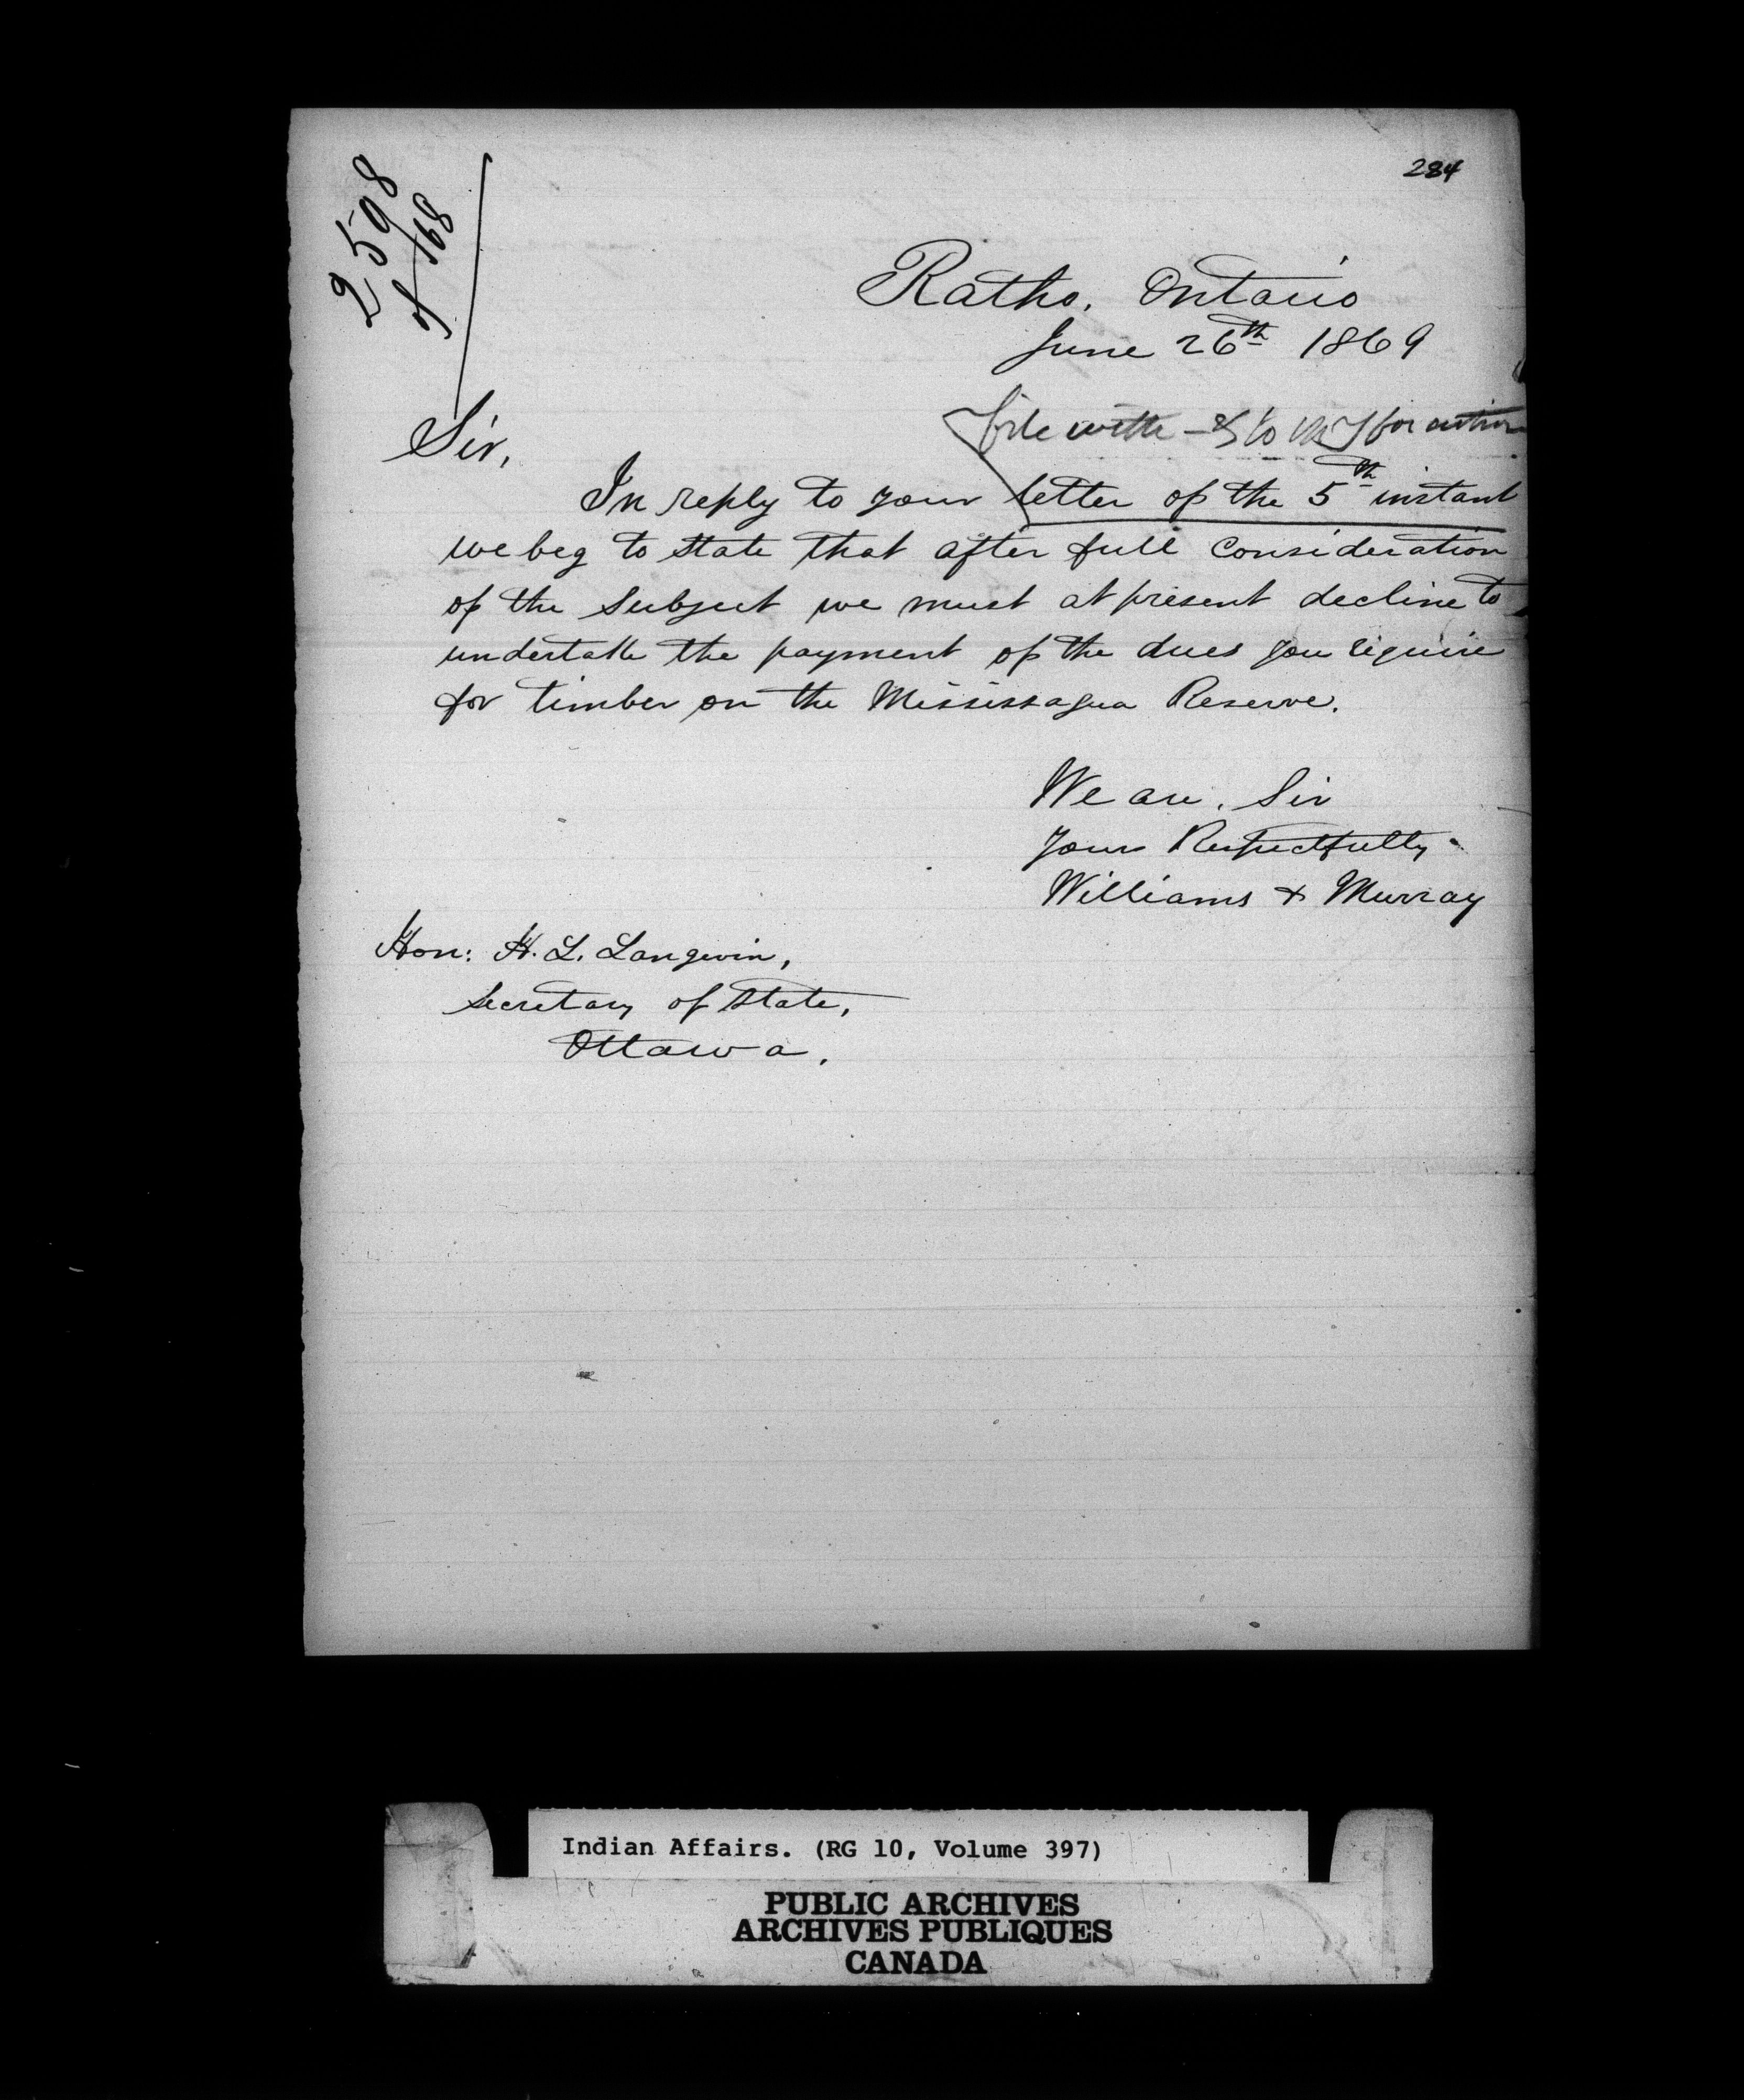 284
2598
of 168
Ratho, Ontario
June 26th 1869
file with - & to for action
Sir,
In reply to your letter of the 5th instant
we beg to state that after full consideration
of the subject we must at present decline to
undertake the payment of the dues you require
for timber on the Mississagua Reserve.
We are, Sir
Yours Respectfully
Williams & Murray
Hon: H. L. Langevin,
Secretary of State,
Ottawa.
Indian Affairs. (RG 10, Volume 397)
PUBLIC ARCHIVES
ARCHIVES PUBLIQUES
CANADA